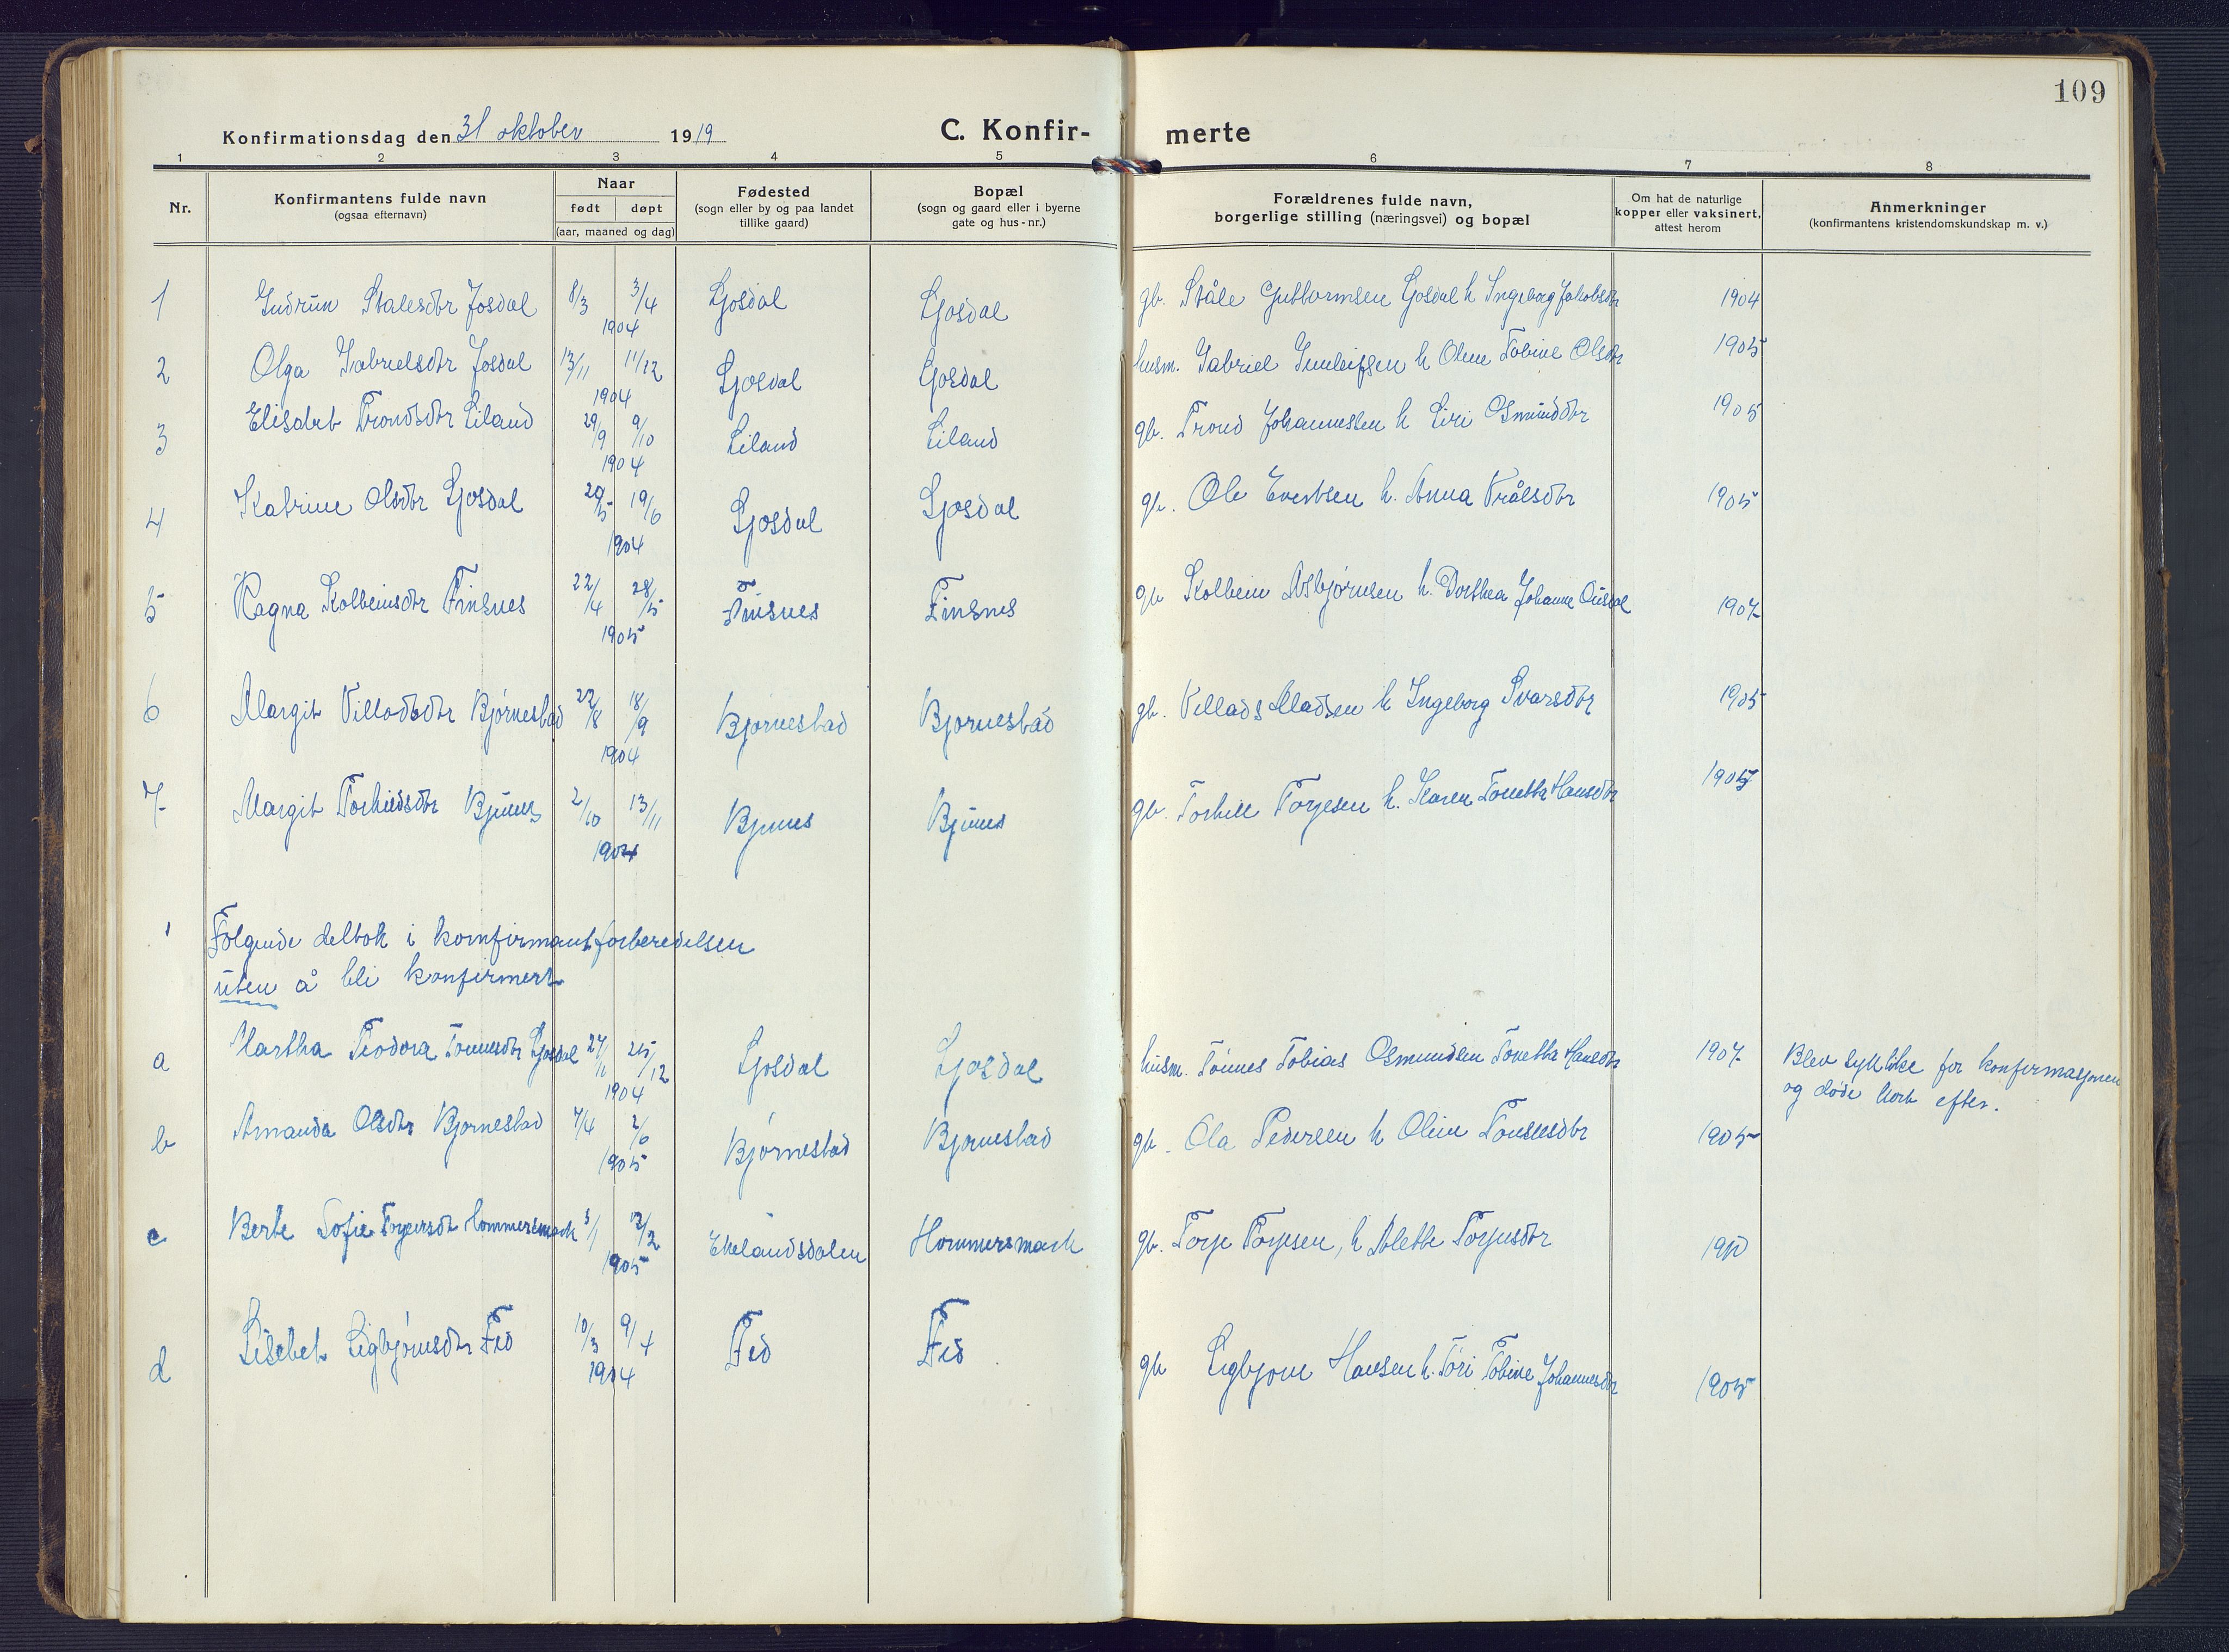 109
Konfirmationsdag den 31 oktober 1919
C. Konfir- merte
1 2 3 4 5 6 7 8
Nr.
Konfirmantens fulde navn
(ogsaa efternavn)
Naar
født døpt
(aar, maaned og dag)
Fødested
(sogn eller by og paa landet
tillike gaard)
Bopæl
(sogn og gaard eller i byerne
gate og hus-nr.)
Forældrenes fulde navn,
borgerlige stilling (næringsvei) og bopæl
Om hat de naturlige
kopper eller vaksinert,
attest herom
Anmerkninger
(konfirmantens kristendomskundskap m. v.)
1 Gudrun Stalesdtr Josdal 8/3 3/4 1904 Ljosdal Ljosdal gb. Ståle Guttormsen Ljosdal h Ingeborg Jakobsdtr 1904
2 Olga Gabrielsdtr Josdal 13/11 11/12 1904 Ljosdal Ljosdal husm. Gabriel Gunleifsen h Olene Tobine Olsdtr 1905
3 Elisabet Trondsdtr Eiland 29/9 9/10 1904 Eiland Eiland gb. Trond Johannessen h Siri Osmunddtr 1905
4 Katrine Olsdtr Ljosdal 19/6 1904 Ljosdal Ljosdal gb. Ole Evertsen h. Anna Trålsdtr 1905
5 Ragna Kolbeinsdtr Finsnes 22/4 28/5 1905 Finsnes Finsnes gb Kolbein Asbjørnsen h. Dorthea Johanne 1907
6 Margit Villadsdtr Bjørnestad 22/8 18/9 1904 Bjørnestad Bjornestad gb. Villads Madsen h Ingeborg Ivarsdtr 1905
7 Margit Torkildsdtr Bjunes 2/10 13/11 1904 Bjunes Bjunes gb. Torkill Torjesen h. Karen Tonetta Hansdtr
Følgende deltok i komfirmantforberedelsen
uten å bli konfirmert
a Martha Teodora Tønnesdtr Ljosdal 25/12 1904 Ljosdal Ljosdal husm. Tønnes Tobias Osmundsen Tonetta Hansdtr 1907 Blev syk like før konfirmasjonen
og døde kort efter.
b Amanda Olsdtr Bjornestad 7/4 2/6 1905 Bjørnestad Bjornestad gb. Ola Pedersen h Oline 1905
c Berte Sofie Hommersmark 1905 Ekelandsdalen Hommersmark gb. Torje Torjesen, h Alette Torjusdtr
d Lisebet Sigbjørnsdtr Fed 10/3 9/4 1904 Fed Fed gb Sigbjorn Hansen h. Tobine Johannesdtr 1905